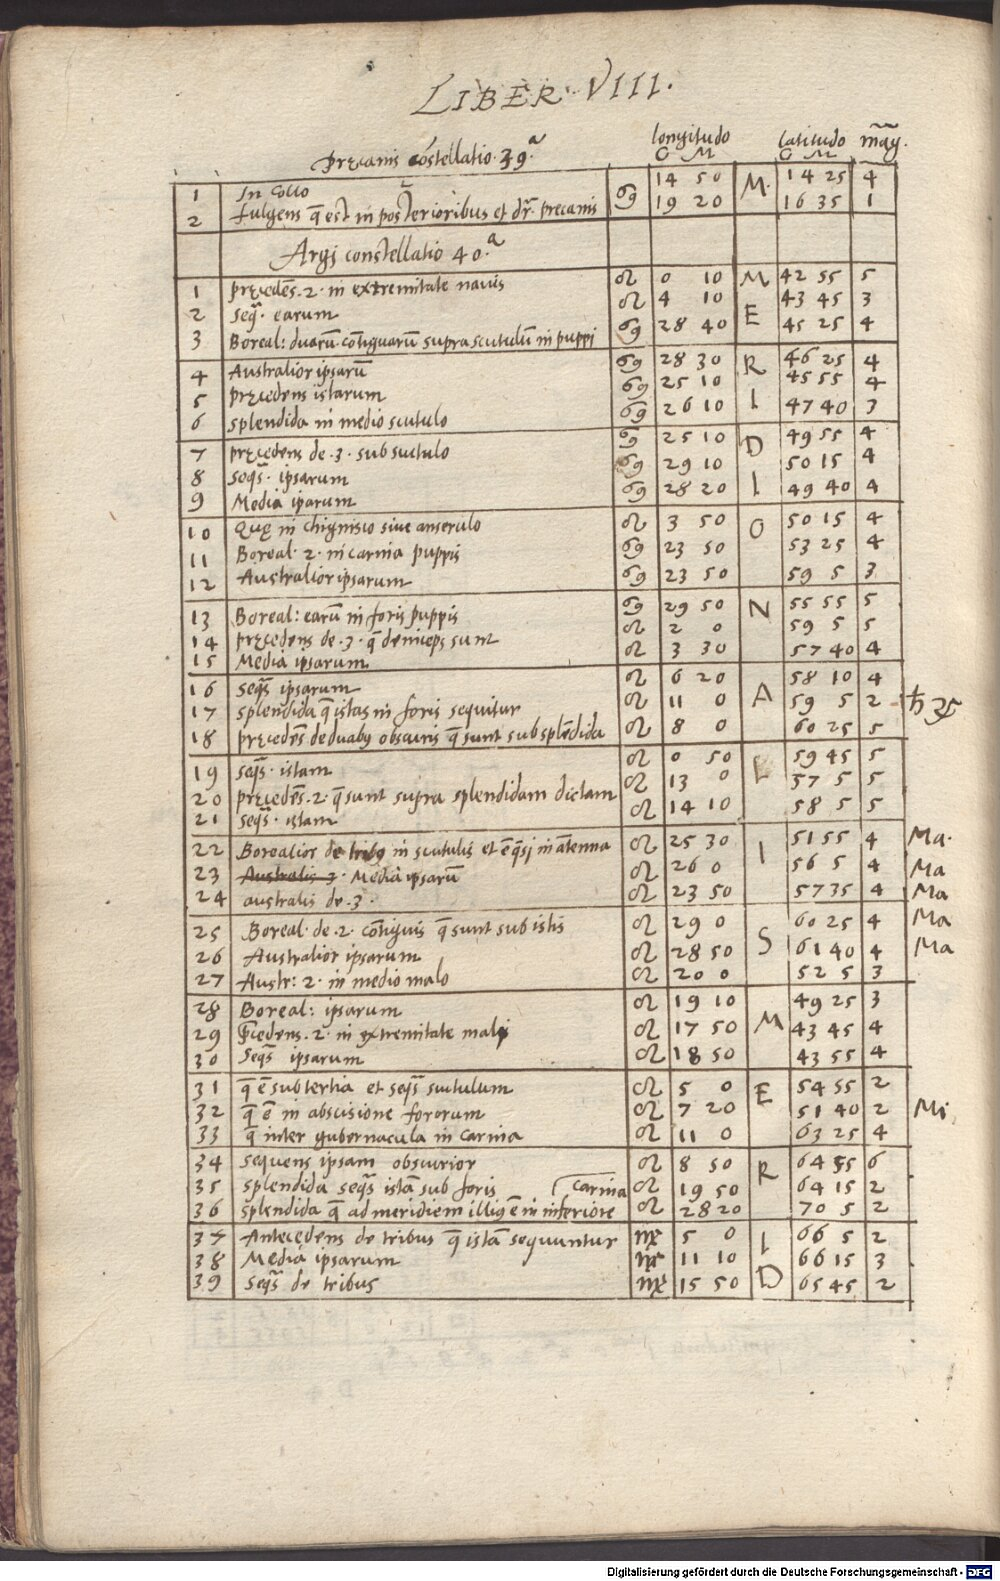 LIBER · VIII.
longitudo latitudo mag.
Pręcanis costellatio · 39.a G M G M
1 In Collo ♋ 14 50 M. 14 25 4
2 fulgens q̄ est in posterioribus et dr̄ precanis 19 20 16 35 1
Argi constellatio 40.a
1 pręcedēs · 2 · in extremitate nauis ♌ 0 10 M 42 55 5
2 seq̄ · earum ♌ 4 10 43 45 3
3 Boreal: duarū contiguarū supra scutulū in puppi ♋ 28 40 E 45 25 4
4 Australior ipsarū ♋ 28 30 R 46 25 4
5 pręcedens istarum ♋ 25 10 45 55 4
6 splendida in medio scutulo ♋ 26 10 I 47 40 3
7 pręcedens de · 3 · sub scutulo ♋ 25 10 D 49 55 4
8 seqs̄ · ipsarum ♋ 29 10 50 15 4
9 Media iparum ♋ 28 20 I 49 40 4
10 Quę in chignisio siue anserulo ♌ 3 50 O 50 15 4
11 Boreal · 2 · in carina puppis ♋ 23 50 53 25 4
12 Australior ipsarum ♋ 23 50 59 5 3
13 Boreal: earū in foris puppis ♋ 29 50 N 55 55 5
14 pręcedens de · 3 · q̄ deinceps sunt ♌ 2 0 59 5 5
15 Media ipsarum ♌ 3 30 57 40 4
16 seqs̄ ipsarum ♌ 6 20 58 10 4
17 splendida q̄ istas in foris sequitur ♌ 11 0 A 59 5 2 ♄ ♃
18 pręcedēs de duaby obscuris q̄ sunt sub splēdida ♌ 8 0 60 25 5
19 seqs̄ · istam ♌ 0 50 L 59 45 5
20 pręcedēs · 2 · q̄ sunt supra splendidam dictam ♌ 13 0 57 5 5
21 seqs̄ · istam ♌ 14 10 58 5 5
22 Borealior de tribꝰ in scutulis et ē q̄si in ātenna ♌ 25 30 I 51 55 4 Ma.
23 Australis 3 · Media ipsarū ♌ 26 0 56 5 4 Ma
24 australis de · 3 · ♌ 23 50 57 35 4 Ma
25 Boreal · de · 2 · cōtiguis q̄ sunt sub istis ♌ 29 0 60 25 4 Ma
26 Australior ipsarum ♌ 28 50 S 61 40 4 Ma
27 Austr: 2 · in medio malo ♌ 20 0 52 5 3
28 Boreal: ipsarum ♌ 19 10 49 25 3
29 p̄cedens · 2 · in extremitate mali ♌ 17 50 M 43 45 4
30 Seqs̄ ipsarum ♌ 18 50 43 55 4
31 q̄ ē sub tertia et seqs̄ scutulum ♌ 5 0 E 54 55 2
32 q̄ ē in abscisione fororum ♌ 7 20 51 40 2 Mi
33 q̄ inter gubernacula in carina ♌ 11 0 63 25 4
34 sequens ipsam obscurior ♌ 8 50 R 64 35 6
35 splendida seqs̄ istā sub foris ♌ 19 50 64 15 2
carina
36 splendida q̄ ad meridiem illiꝰ ē in inferiore ♌ 28 20 70 5 2
37 Antecędens de tribus q̄ istā sequuntur ♍ 5 0 I 66 5 2
38 Media ipsarum ♍ 11 10 66 15 3
39 Seqs̄ de tribus ♍ 15 50 D 65 45 2
Digitalisierung gefördert durch die Deutsche Forschungsgemeinschaft - DFG